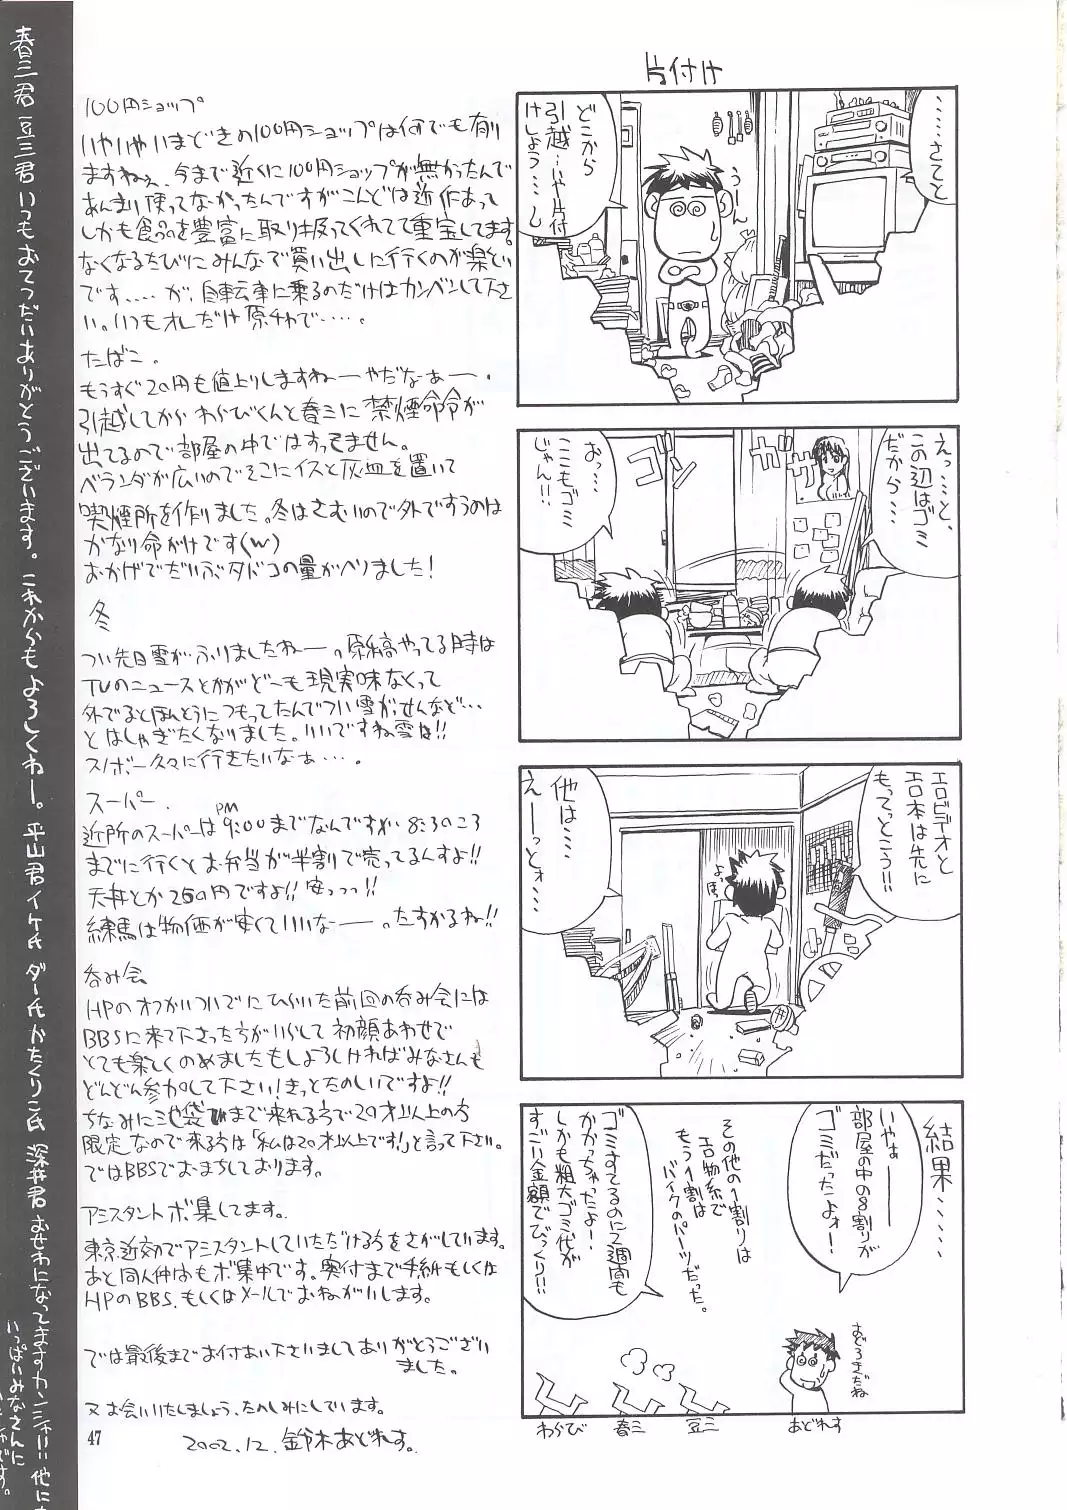 片付け
………さてと
どこから
引越…いや片付
けしよう……し
うーん
えっ……と、
この辺はゴミ
だから……
おっ……
ここもゴミ
じゃん!!
ゴソ
ガサ
エロビデオと
エロ本は先に
もってっとこう!!
他は……
えーっとォ…
よっ
ほっ
結果……
いやぁ――
部屋の中の8割りが
ゴミだったよォー!
その他の1割りは
エロ物系で
もう1割は
バイクのパーツだった。
ゴミすてるのに2週間も
かかっちゃったよー!
しかも粗大ゴミ代が
すごい金額でびっくり!!
おどろきだね
わらび
春三
豆三
あどれす
100円ショップ
いやいやいまどきの100円ショップは何でも有り
ますねぇ、今まで近くに100円ショップが無かったんで
あんまり使ってなかったんですがこんどは近所にあって
しかも食品を豊富に取り扱ってくれてて重宝してます。
なくなるたびにみんなで買い出しに行くのが楽しい
です……が、自転車に乗るのだけはカンベンして下さ
い。いつもオレだけ原チャで……。
たばこ。
もうすぐ20円も値上りしますねーーやだなぁーー。
引越してから わらびくんと春三に禁煙命令が
出てるので部屋の中ではすってません。
ベランダが広いのでそこにイスと灰皿を置いて
喫煙所を作りました。冬はさむいので外ですうのは
かなり命がけです(w)
おかげでだいぶタバコの量がへりました!
冬
つい先日雪がふりましたねー。原稿やってる時は
TVのニュースとかがどーも現実味なくって
外でるとほんとうにつもってたんでつい雪がっせんなど…
とはしゃぎたくなりました。いいですね雪は!!
スノボー久々に行きたいなぁ…。
スーパー.
近所のスーパーはPM9:00までなんですが 8:30ころ
までに行くとお弁当が半割で売ってるんすよ!!
天丼とか250円ですよ!! 安っっっ!!
練馬は物価が安くていいなーー。たすかるね!!
呑み会
HPのオフかいついでにひらいた前回の呑み会には
BBSに来て下さった方がいらして初顔あわせで
とても楽しくのめましたもしよろしければみなさんも
どんどん参加して下さい!きっとたのしいですよ!!
ちなみに池袋まで来れる方で20才以上の方
限定なので来る方は「私は20才以上です!」と言って下さい。
ではBBSでおまちしております。
アシスタントボ集してます。
東京近郊でアシスタントしていただける方をさがしています。
あと同人仲間もボ集中です。奥付まで手紙もしくは
HPのBBS、もしくはメールでおねがいします。
では最後までお付あい下さいましてありがとうござい
ました。
又お会いいたしましょう、たのしみにしています。
2002.12. 鈴木あどれす。
47
春三君 豆三君 いつもおてつだいありがとうございます。これからもよろしくねー。平山君 イケ氏 ダー氏 かたくりこ氏 深井君 おせわになってますカンシャ!! 他に
いっぱいみなさんに